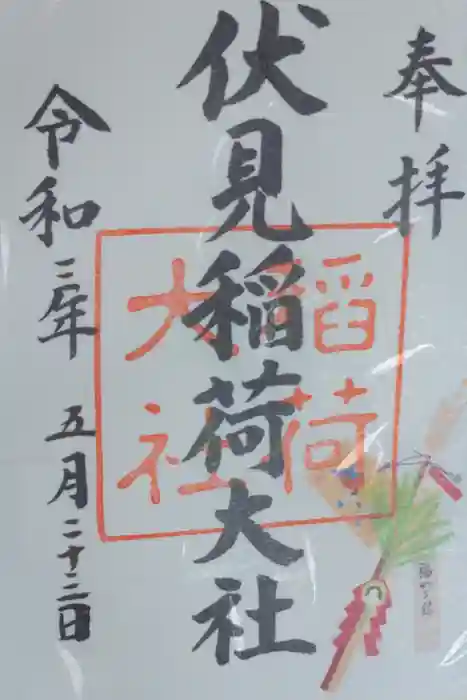 奉拝
伏見稲荷大社
稲荷
大社
令和三年 五月二十二日